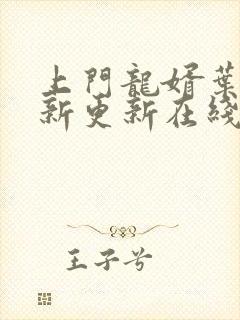 上門龍婿葉
新更新在綫
王子兮